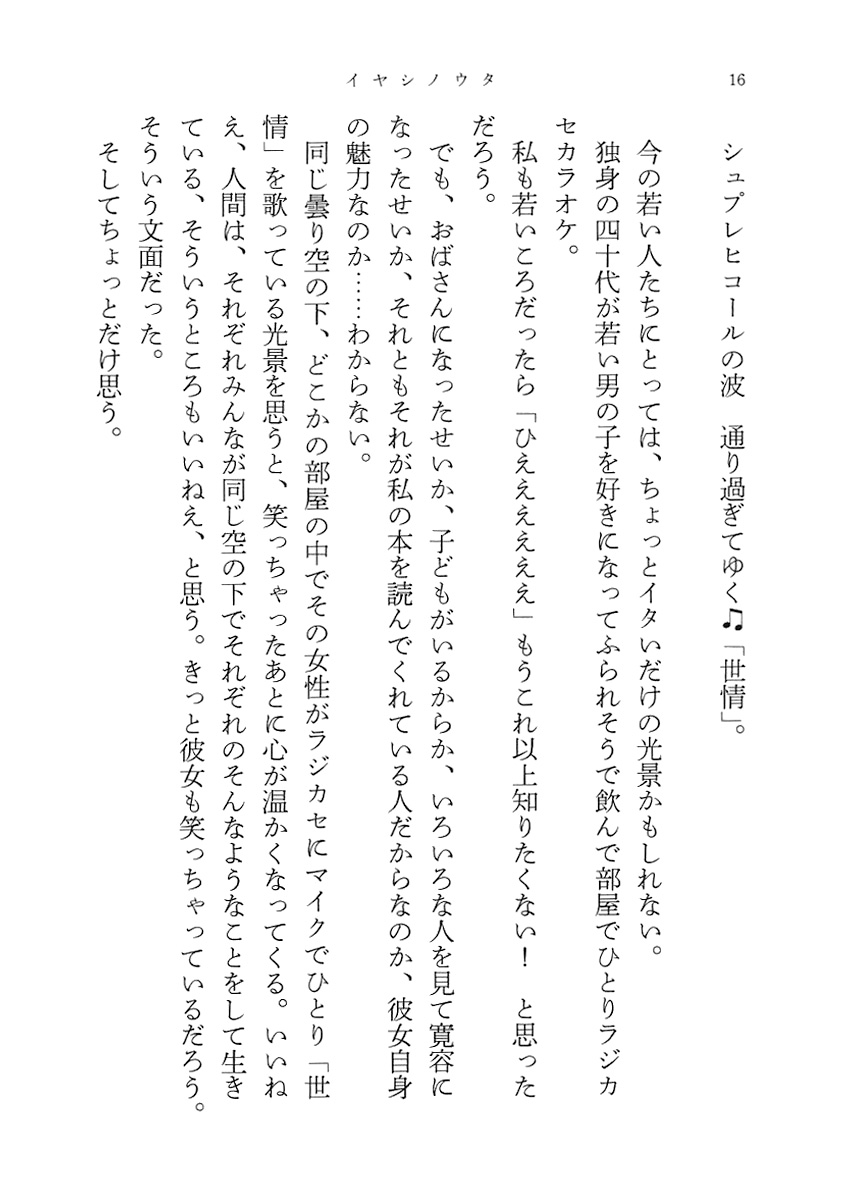 イヤシノウタ
16
シュプレヒコールの波　通り過ぎてゆく♫「世情」。
今の若い人たちにとっては、ちょっとイタいだけの光景かもしれない。
独身の四十代が若い男の子を好きになってふられそうで飲んで部屋でひとりラジカ
セカラオケ。
私も若いころだったら「ひえええええええ」もうこれ以上知りたくない！　と思った
だろう。
でも、おばさんになったせいか、子どもがいるからか、いろいろな人を見て寛容に
なったせいか、それともそれが私の本を読んでくれている人だからなのか、彼女自身
の魅力なのか……わからない。
同じ曇り空の下、どこかの部屋の中でその女性がラジカセにマイクでひとり「世
情」を歌っている光景を思うと、笑っちゃったあとに心が温かくなってくる。いいね
え、人間は、それぞれみんなが同じ空の下でそれぞれのそんなようなことをして生き
ている、そういうところもいいねえ、と思う。きっと彼女も笑っちゃっているだろう。
そういう文面だった。
そしてちょっとだけ思う。